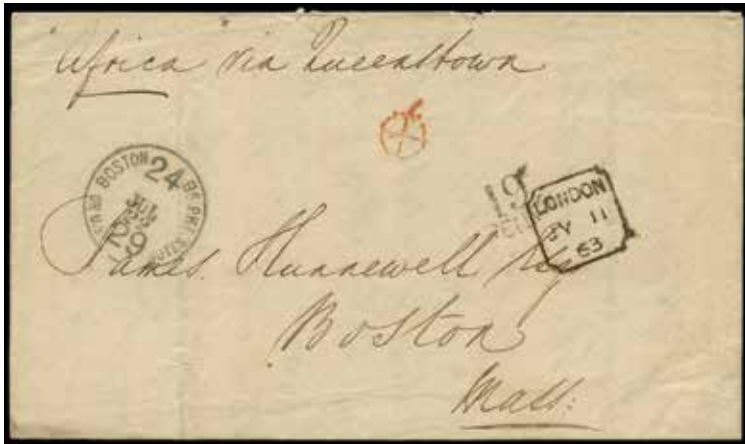 "Africa" via Queenstown
BOSTON 24 BR. PKT.
19
LONDON
JY 11
63
James Hunnewell Esq
Boston
Mass: